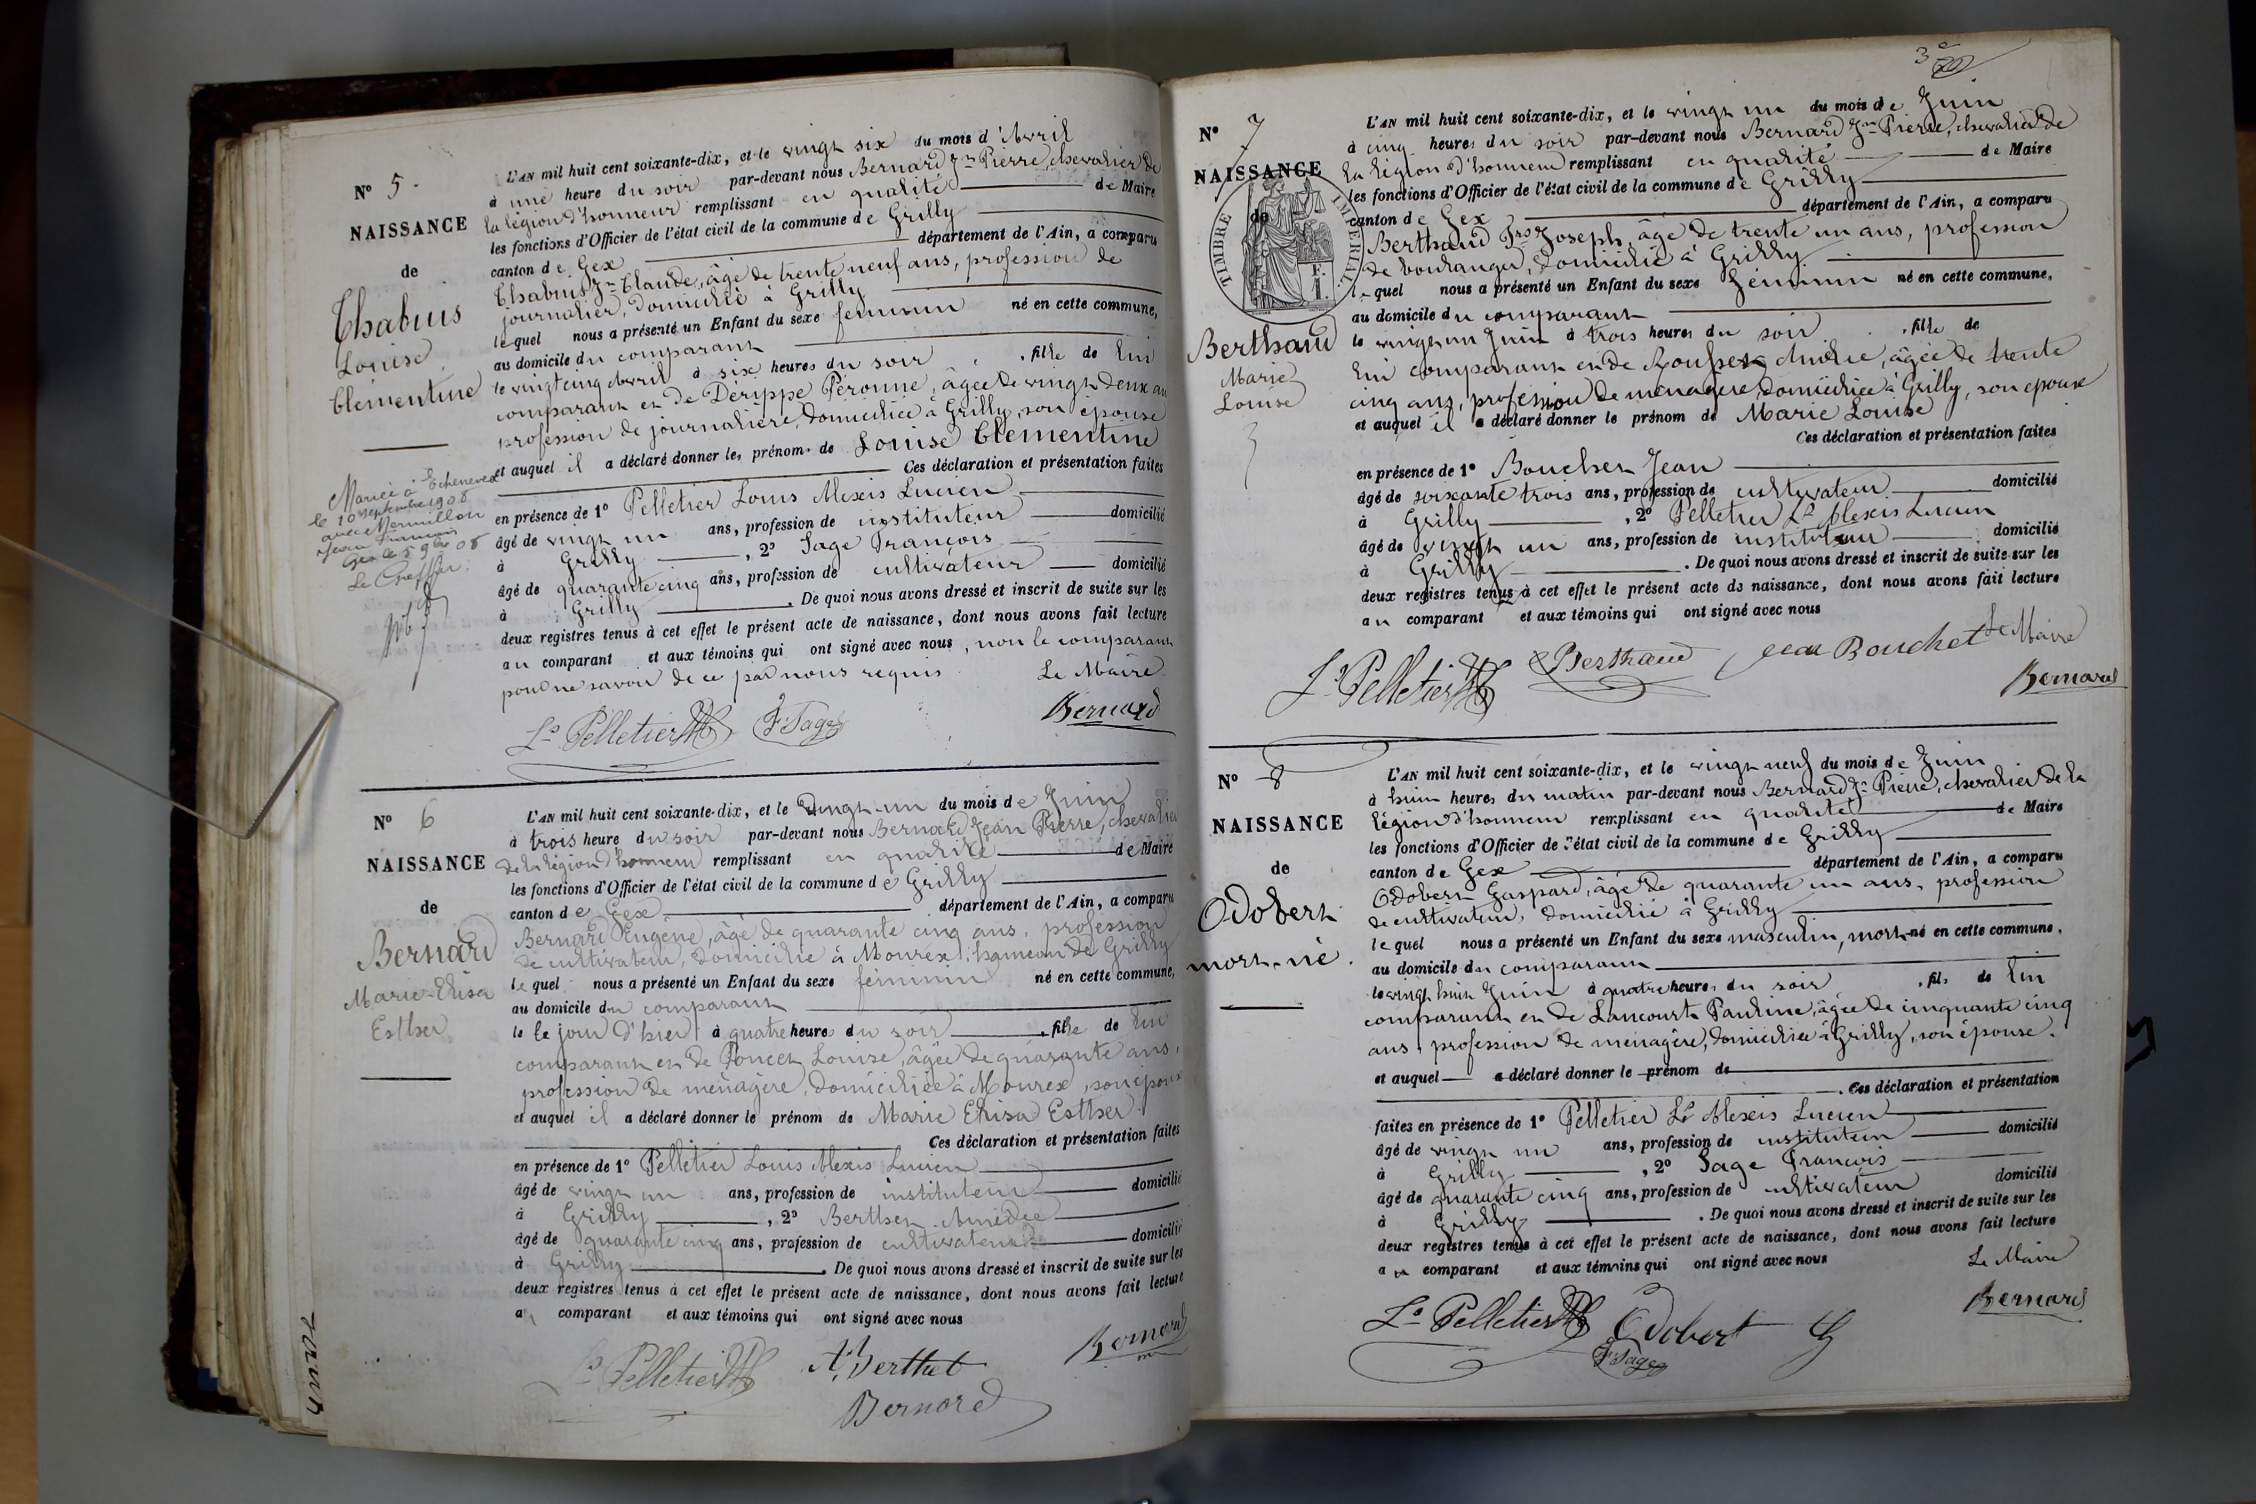 N° 5.
NAISSANCE
de
Chabuis
Louise
Clémentine
Mariée à Echenevex
le 10 septembre 1908
avec Mermillon
Jean François
Gex le 5 9bre 08
Le Greffier
L'AN mil huit cent soixante-dix, et le vingt six du mois d'Avril
à une heure du soir par-devant nous Bernard Jn Pierre, chevalier de
la légion d'honneur remplissant en qualité de Maire
les fonctions d'Officier de l'état civil de la commune de Grilly
canton de Gex département de l'Ain, a comparu
Chabuis Jn Claude, âgé de trente neuf ans, profession de
journalier, domicilié à Grilly
lequel nous a présenté un Enfant du sexe féminin né en cette commune,
au domicile du comparant
le vingt cinq Avril à six heures du soir, fille de lui
comparant et de Dérippe Péronne, âgée de vingt deux ans
profession de journalière, domiciliée à Grilly, son épouse
et auquel il a déclaré donner les prénoms de Louise Clémentine
Ces déclaration et présentation faites
en présence de 1° Pelletier Louis Alexis Lucien
âgé de vingt un ans, profession de instituteur domicilié
à Grilly, 2° Sage François
âgé de quarante cinq ans, profession de cultivateur domicilié
à Grilly. De quoi nous avons dressé et inscrit de suite sur les
deux registres tenus à cet effet le présent acte de naissance, dont nous avons fait lecture
au comparant et aux témoins qui ont signé avec nous, non le comparant
pour ne savoir de ce par nous requis
Le Maire
Ls Pelletier F. Sage Bernard
N° 6
NAISSANCE
de
Bernard
Marie-Elisa
Esther
L'AN mil huit cent soixante-dix, et le vingt-un du mois de Juin
à trois heure du soir par-devant nous Bernard Jean Pierre, chevalier
de la légion d'honneur remplissant en qualité de Maire
les fonctions d'Officier de l'état civil de la commune de Grilly
canton de Gex département de l'Ain, a comparu
Bernard Eugène, âgé de quarante cinq ans, profession
de cultivateur, domicilié à Mourex, hameau de Grilly
lequel nous a présenté un Enfant du sexe féminin né en cette commune,
au domicile du comparant
le le jour d'hier à quatre heures du soir, fille de lui
comparant et de Poncet Louise, âgée de quarante ans,
profession de ménagère, domiciliée à Mourex, son épouse
et auquel il a déclaré donner le prénom de Marie Elisa Esther
Ces déclaration et présentation faites
en présence de 1° Pelletier Louis Alexis Lucien
âgé de vingt un ans, profession de instituteur domicilié
à Grilly, 2° Berthet Amédée
âgé de quarante cinq ans, profession de cultivateur domicilié
à Grilly. De quoi nous avons dressé et inscrit de suite sur les
deux registres tenus à cet effet le présent acte de naissance, dont nous avons fait lecture
au comparant et aux témoins qui ont signé avec nous
Ls Pelletier Berthet Bernard
Bernard
3e
N° 7
NAISSANCE
de
TIMBRE IMPERIAL
1 F.
Berthaud
Marie
Louise
L'AN mil huit cent soixante-dix, et le vingt un du mois de Juin
à cinq heures du soir par-devant nous Bernard Jn Pierre, chevalier de
la légion d'honneur remplissant en qualité de Maire
les fonctions d'Officier de l'état civil de la commune de Grilly
canton de Gex département de l'Ain, a comparu
Berthaud Frs Joseph, âgé de trente un ans, profession
de boulanger, domicilié à Grilly
lequel nous a présenté un Enfant du sexe féminin né en cette commune,
au domicile du comparant
le vingt un Juin à trois heures du soir, fille de
lui comparant et de âgée de trente
cinq ans, profession de ménagère, domiciliée à Grilly, son épouse
et auquel il a déclaré donner le prénom de Marie Louise
Ces déclaration et présentation faites
en présence de 1° Bouchet Jean
âgé de soixante trois ans, profession de cultivateur domicilié
à Grilly, 2° Pelletier Ls Alexis Lucien
âgé de vingt un ans, profession de instituteur domicilié
à Grilly. De quoi nous avons dressé et inscrit de suite sur les
deux registres tenus à cet effet le présent acte de naissance, dont nous avons fait lecture
au comparant et aux témoins qui ont signé avec nous
Le Maire
Ls Pelletier Berthaud Jean Bouchet Bernard
N° 8
NAISSANCE
de
Odobert
mort-né.
L'AN mil huit cent soixante-dix, et le vingt neuf du mois de Juin
à huit heures du matin par-devant nous Bernard Jn Pierre, chevalier de la
légion d'honneur remplissant en qualité de Maire
les fonctions d'Officier de l'état civil de la commune de Grilly
canton de Gex département de l'Ain, a comparu
Odobert Gaspard, âgé de quarante un ans, profession
de cultivateur, domicilié à Grilly
lequel nous a présenté un Enfant du sexe masculin, mort-né en cette commune,
au domicile du comparant
le vingt huit Juin à quatre heures du soir, fils de lui
comparant et de Lancourt Pauline, âgée de cinquante cinq
ans, profession de ménagère, domiciliée à Grilly, son épouse.
et auquel a déclaré donner le prénom de
Ces déclaration et présentation
faites en présence de 1° Pelletier Ls Alexis Lucien
âgé de vingt un ans, profession de instituteur domicilié
à Grilly, 2° Sage François
âgé de quarante cinq ans, profession de cultivateur domicilié
à Grilly. De quoi nous avons dressé et inscrit de suite sur les
deux registres tenus à cet effet le présent acte de naissance, dont nous avons fait lecture
au comparant et aux témoins qui ont signé avec nous
Le Maire
Ls Pelletier Odobert G Bernard
F. Sage